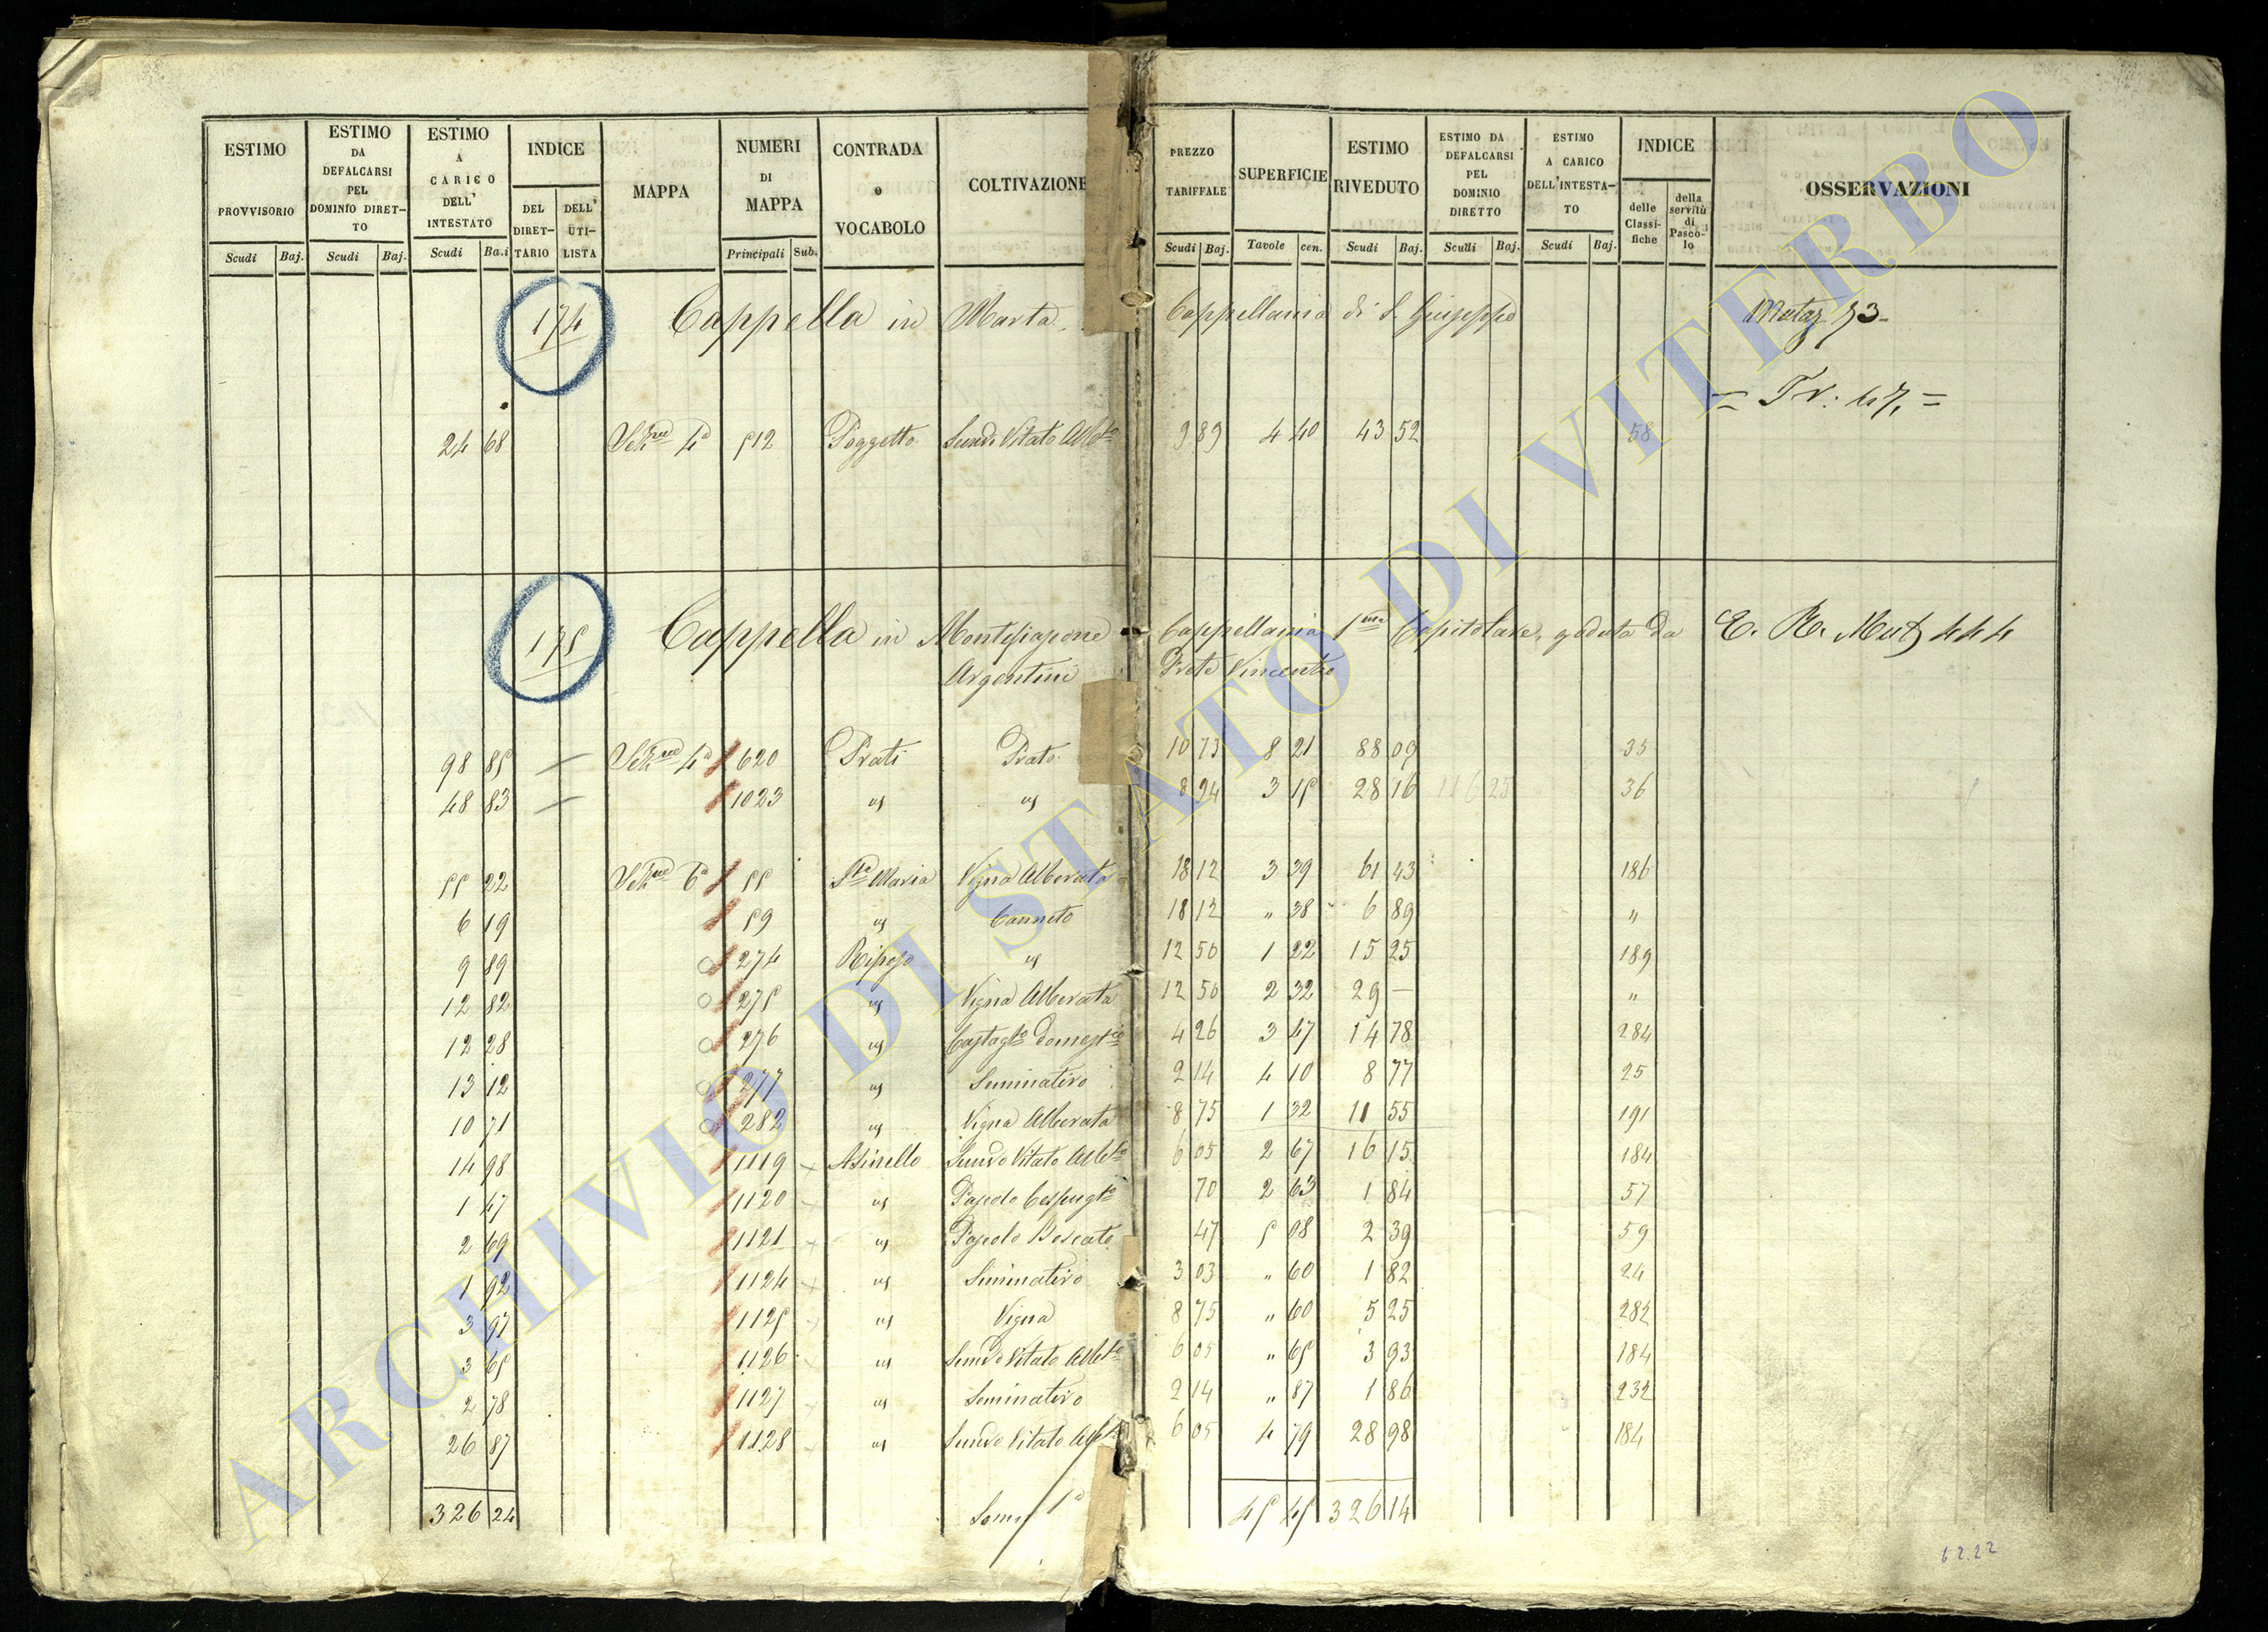 ESTIMO PROVVISORIO Scudi Baj.
ESTIMO DA DEFALCARSI PEL DOMINIO DIRET-TO Scudi Baj.
ESTIMO A CARICO DELL' INTESTATO Scudi Ba.i
INDICE DEL DIRET-TARIO DELL' UTI-LISTA
MAPPA
NUMERI DI MAPPA Principali Sub.
CONTRADA e VOCABOLO
COLTIVAZIONE
PREZZO TARIFFALE Scudi Baj.
SUPERFICIE Tavole cen.
ESTIMO RIVEDUTO Scudi Baj.
ESTIMO DA DEFALCARSI PEL DOMINIO DIRETTO Scudi Baj.
ESTIMO A CARICO DELL'INTESTA-TO Scudi Baj.
INDICE delle Classi-fiche della servitù di Pasco-lo
OSSERVAZIONI
174 Cappella in Marta. Cappellania di S. Giuseppe
= Tr: 47. =
24 68 Sez.ne 4a 512 Poggetto Semvo Vitato Albto 9 89 4 40 43 52 58
175 Cappella in Montefiascone Cappellania 1ma Capitolare, goduta da E. R. Mutz 444
Argentini Prete Vincenzo
98 85 — Sez.ne 4a 620 Prati Prato 10 73 8 21 88 09 35
48 83 — 1023 " " 8 94 3 15 28 16 116 25 36
55 22 Sez.ne 6a 55 Sta Maria Vigna Alberata 18 12 3 39 61 43 186
6 19 59 " Canneto 18 12 " 38 6 89 "
9 89 274 Riposo " 12 50 1 22 15 25 189
12 82 275 " Vigna Alberata 12 50 2 32 29 — "
12 28 276 " Castagto domestco 4 26 3 47 14 78 284
13 12 277 " Seminativo 2 14 4 10 8 77 25
10 71 282 " Vigna Alberata 8 75 1 32 11 55 191
14 98 1119 Asinello Semvo Vitato Albto 6 05 2 67 16 15 184
1 47 1120 " Pascolo Cespugto 70 2 63 1 84 57
2 69 1121 " Pascolo Boscato 47 5 08 2 39 59
1 92 1124 " Seminativo 3 03 " 60 1 82 24
3 97 1125 " Vigna 8 75 " 60 5 25 282
3 65 1126 " Semvo Vitato Albto 6 05 " 65 3 93 184
2 78 1127 " Seminativo 2 14 " 87 1 86 232
26 87 1128 " Semvo Vitato Albto 6 05 4 79 28 98 184
326 24 1a 45 45 326 14
62.22
ARCHIVIO DI STATO DI VITERBO